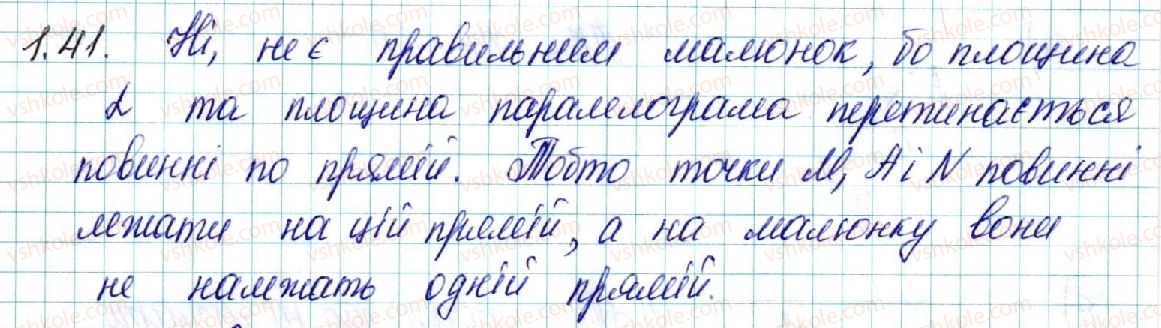 1.41. Ні, не є правильним малюнок, бо площина
α та площина паралелограма перетинається
повинні по прямій. Тобто точки M, A і N повинні
лежати на цій прямій, а на малюнку вони
не належать одній прямій.